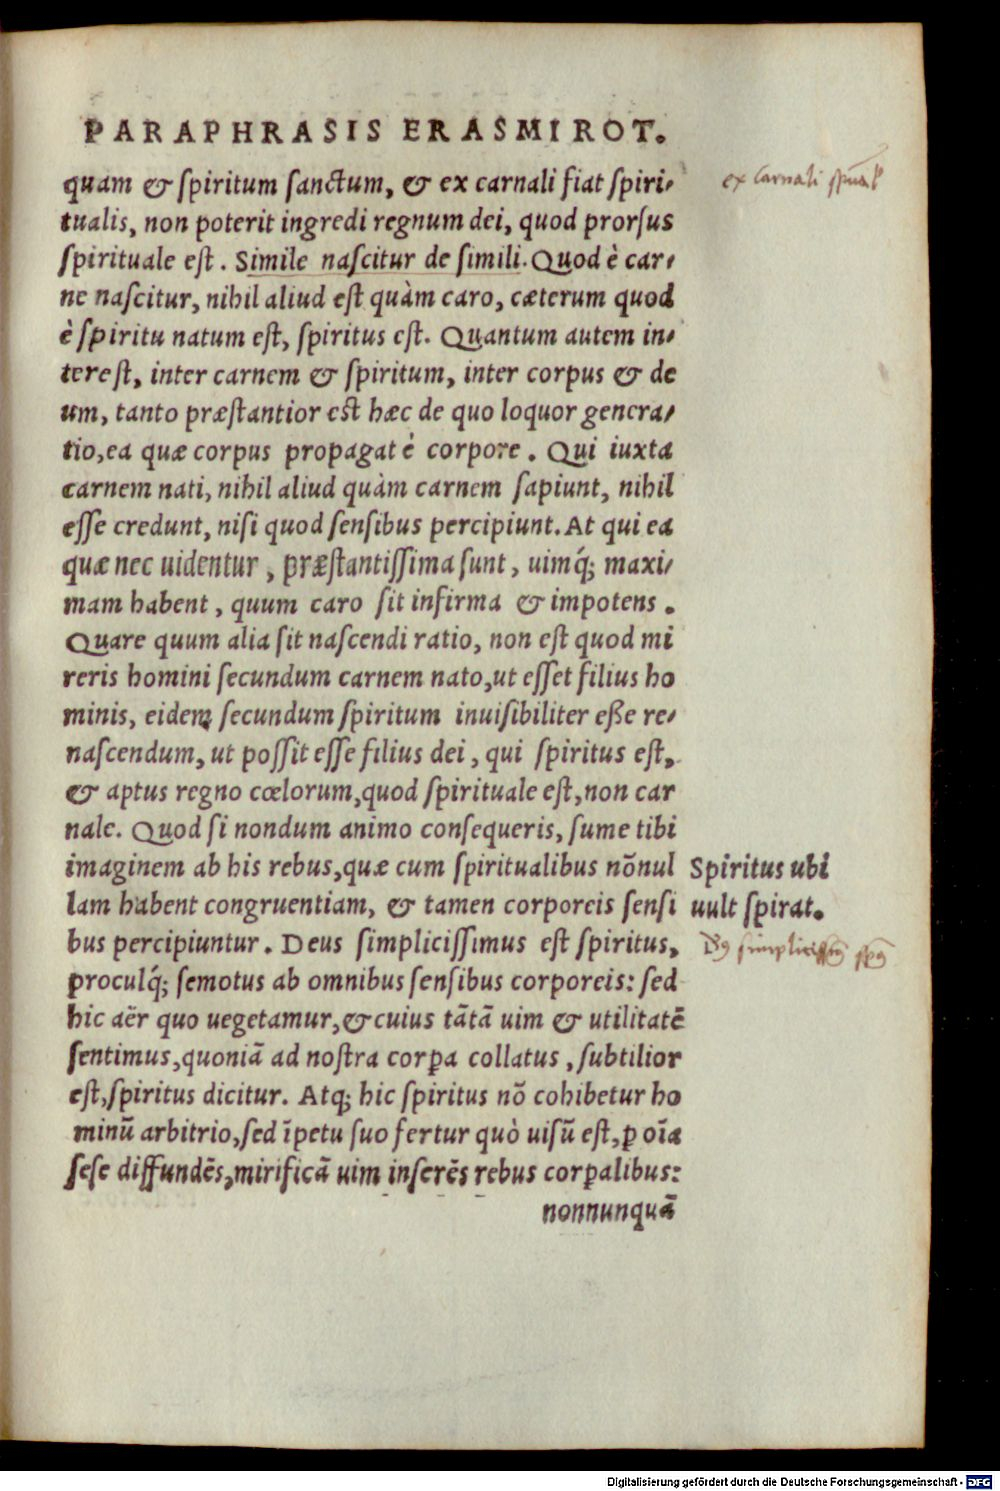 PARAPHRASIS ERASMI ROT.
quam & ſpiritum ſanctum, & ex carnali fiat ſpiri-
tualis, non poterit ingredi regnum dei, quod prorſus
ſpirituale eſt. Simile naſcitur de ſimili. Quod è car-
ne naſcitur, nihil aliud eſt quàm caro, cæterum quod
è ſpiritu natum eſt, ſpiritus eſt. Quantum autem in-
tereſt, inter carnem & ſpiritum, inter corpus & de
um, tanto præſtantior eſt hæc de quo loquor genera-
tio, ea quæ corpus propagat è corpore. Qui iuxta
carnem nati, nihil aliud quàm carnem ſapiunt, nihil
eſſe credunt, niſi quod ſenſibus percipiunt. At qui ea
quæ nec uidentur, præſtantiſſima ſunt, uimq́; maxi-
mam habent, quum caro ſit infirma & impotens.
Quare quum alia ſit naſcendi ratio, non eſt quod mi
reris homini ſecundum carnem nato, ut eſſet filius ho
minis, eidem ſecundum ſpiritum inuiſibiliter eße re-
naſcendum, ut poſſit eſſe filius dei, qui ſpiritus eſt,
& aptus regno cœlorum, quod ſpirituale eſt, non car
nale. Quod ſi nondum animo conſequeris, ſume tibi
imaginem ab his rebus, quæ cum ſpiritualibus nõnul
lam habent congruentiam, & tamen corporeis ſenſi
bus percipiuntur. Deus ſimpliciſſimus eſt ſpiritus,
proculq́; ſemotus ab omnibus ſenſibus corporeis: ſed
hic aër quo uegetamur, & cuius tãtã uim & utilitatẽ
ſentimus, quoniã ad noſtra corꝑa collatus, ſubtilior
eſt, ſpiritus dicitur. Atq; hic ſpiritus nõ cohibetur ho
minũ arbitrio, ſed ĩpetu ſuo fertur quò uiſũ eſt, ꝑ oĩa
ſeſe diffundẽs, mirificã uim inſerẽs rebus corꝑalibus:
nonnunquã
ex carnali
Spiritus ubi
uult ſpirat.
Digitalisierung gefördert durch die Deutsche Forschungsgemeinschaft - DFG